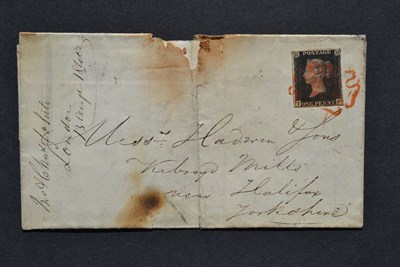 London
Aug 1840
POSTAGE
ONE PENNY
Messrs Hadwen & Sons
Kebroyd Mills
near Halifax
Yorkshire